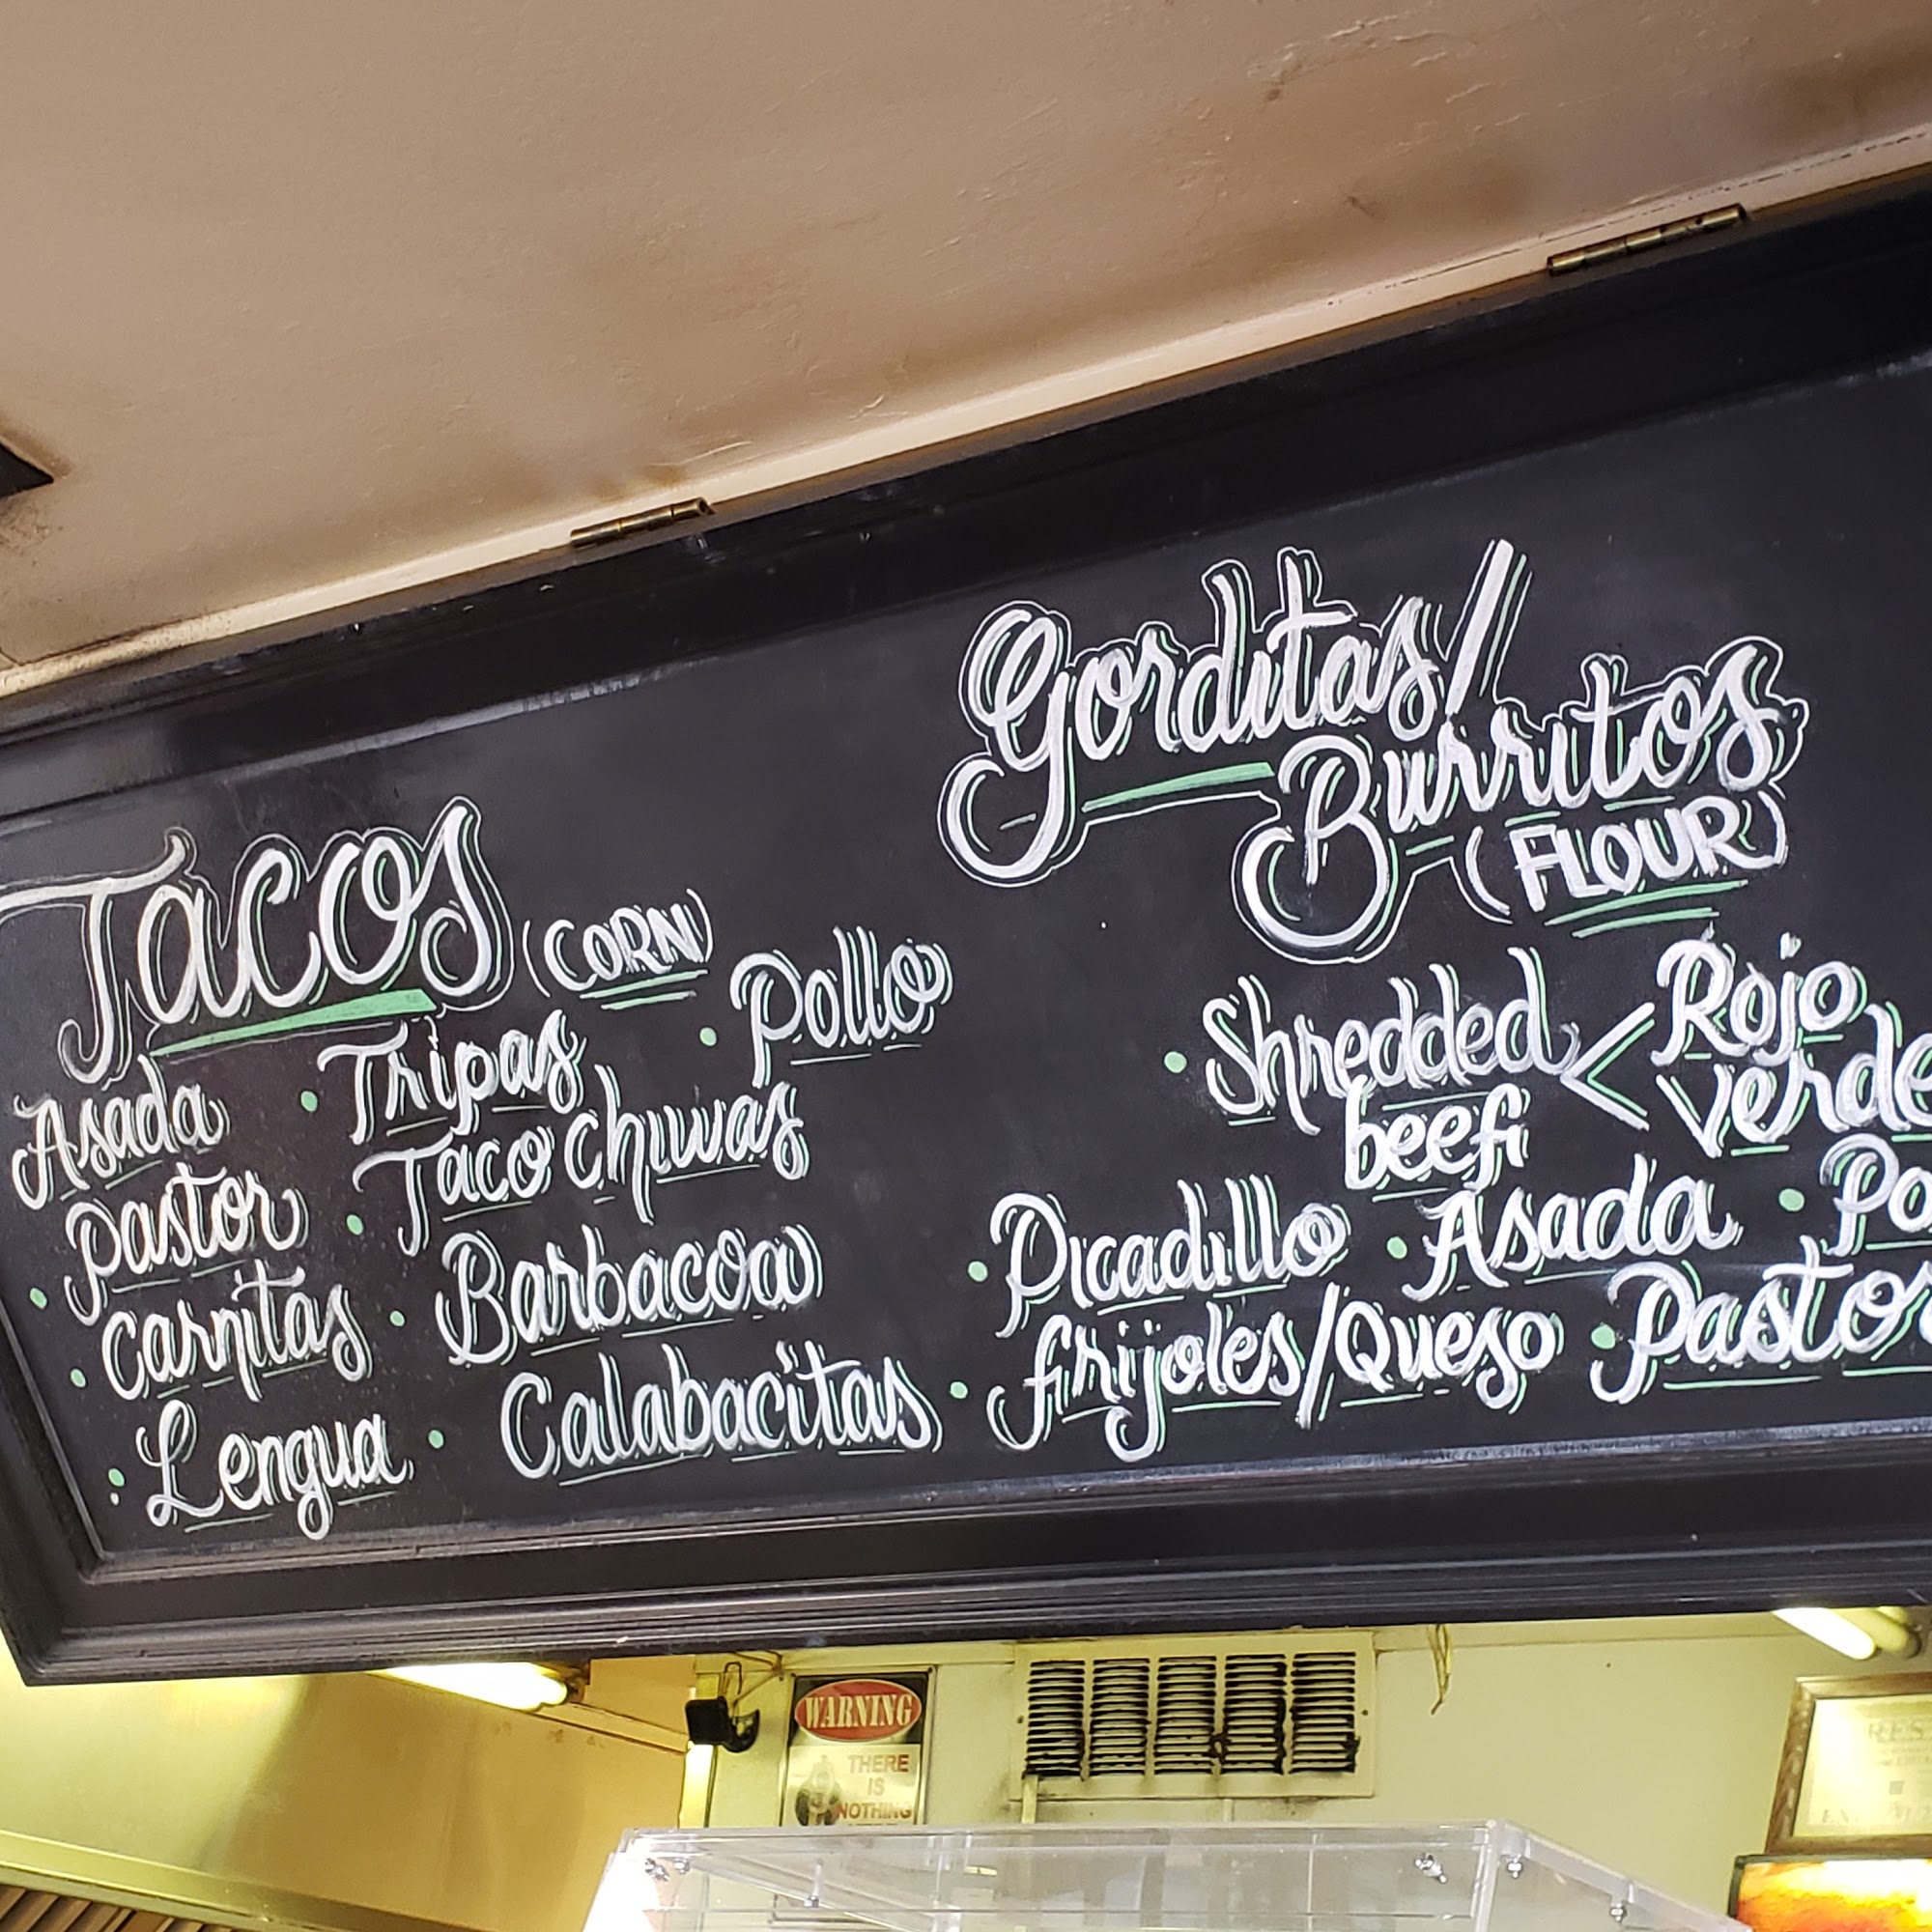 Tacos (CORN)
Asada
Pastor
• Carnitas
• Lengua
• Tripas
• Taco Chiwas
• Barbacoa
• Calabacitas
• Pollo
Gorditas/
Burritos
(FLOUR)
• Shredded < Rojo
beef Verde
• Picadillo • Asada •
• frijoles/Queso • Pastor
WARNING
THERE
IS
NOTHING